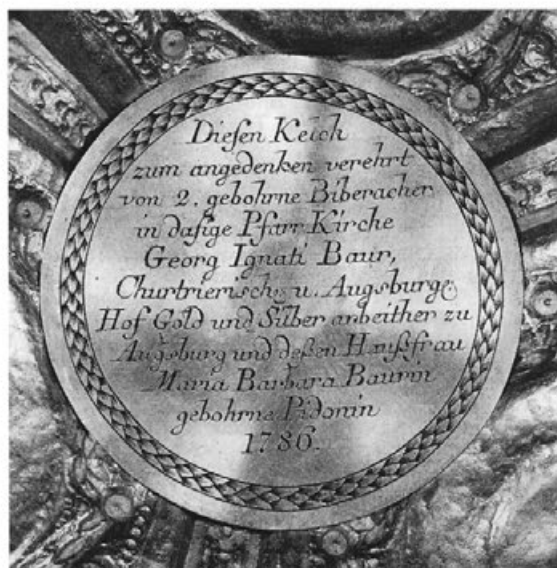 Diesen Kelch
zum angedenken verehrt
von 2. gebohrne Biberacher
in dasige Pfarr Kirche
Georg Ignati Baur,
Churtrierisch u. Augsburg
Hof Gold und Silber arbeither zu
Augsburg und deßen Haußfrau
Maria Barbara Baurin
gebohrne Pidonin
1786.